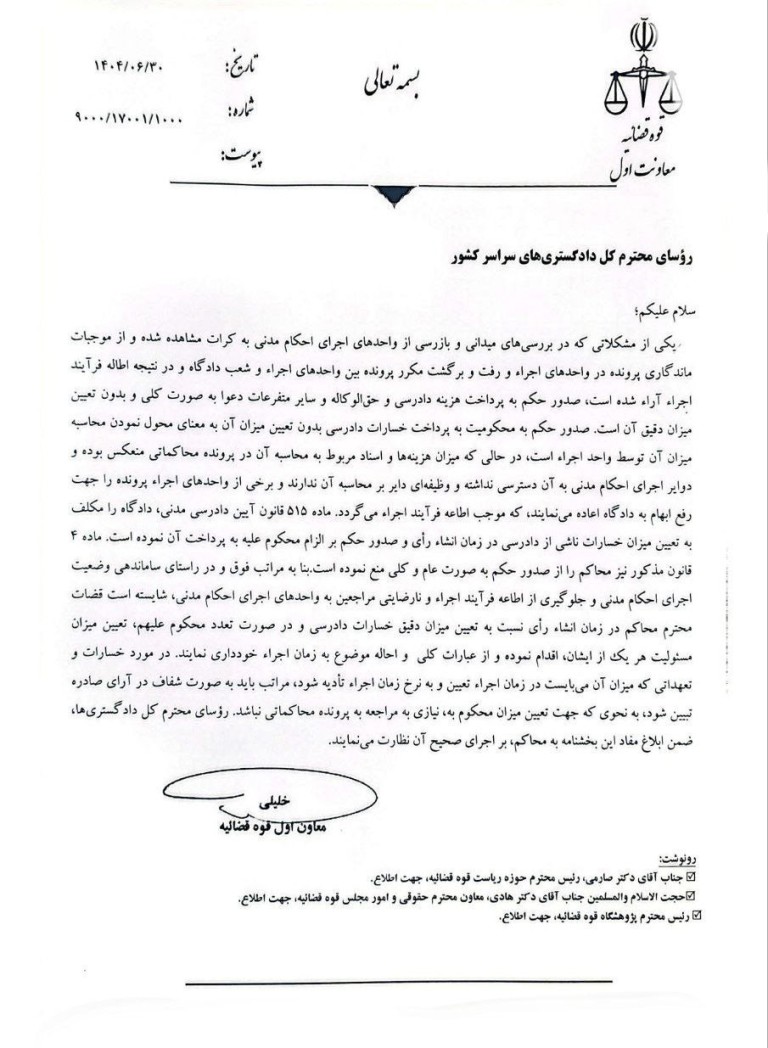 قوه قضائیه
معاونت اول
بسمه تعالی
تاریخ: ۱۴۰۴/۰۶/۳۰
شماره: ۹۰۰۰/۱۷۰۰۱/۱۰۰۰
پیوست:
رؤسای محترم کل دادگستری‌های سراسر کشور
سلام علیکم؛
یکی از مشکلاتی که در بررسی‌های میدانی و بازرسی از واحدهای اجرای احکام مدنی به کرات مشاهده شده و از موجبات
ماندگاری پرونده در واحدهای اجراء و رفت و برگشت مکرر پرونده بین واحدهای اجراء و شعب دادگاه و در نتیجه اطاله فرآیند
اجراء آراء شده است، صدور حکم به پرداخت هزینه دادرسی و حق‌الوکاله و سایر متفرعات دعوا به صورت کلی و بدون تعیین
میزان دقیق آن است. صدور حکم به محکومیت به پرداخت خسارات دادرسی بدون تعیین میزان آن به معنای محول نمودن محاسبه
میزان آن توسط واحد اجراء است، در حالی که میزان هزینه‌ها و اسناد مربوط به محاسبه آن در پرونده محاکماتی منعکس بوده و
دوایر اجرای احکام مدنی به آن دسترسی نداشته و وظیفه‌ای دایر بر محاسبه آن ندارند و برخی از واحدهای اجراء پرونده را جهت
رفع ابهام به دادگاه اعاده می‌نمایند، که موجب اطاعه فرآیند اجراء می‌گردد. ماده ۵۱۵ قانون آیین دادرسی مدنی، دادگاه را مکلف
به تعیین میزان خسارات ناشی از دادرسی در زمان انشاء رأی و صدور حکم بر الزام محکوم علیه به پرداخت آن نموده است. ماده ۴
قانون مذکور نیز محاکم را از صدور حکم به صورت عام و کلی منع نموده است.بنا به مراتب فوق و در راستای ساماندهی وضعیت
اجرای احکام مدنی و جلوگیری از اطاعه فرآیند اجراء و نارضایتی مراجعین به واحدهای اجرای احکام مدنی، شایسته است قضات
محترم محاکم در زمان انشاء رأی نسبت به تعیین میزان دقیق خسارات دادرسی و در صورت تعدد محکوم علیهم، تعیین میزان
مسئولیت هر یک از ایشان، اقدام نموده و از عبارات کلی و احاله موضوع به زمان اجراء خودداری نمایند. در مورد خسارات و
تعهداتی که میزان آن می‌بایست در زمان اجراء تعیین و به نرخ زمان اجراء تأدیه شود، مراتب باید به صورت شفاف در آرای صادره
تبیین شود، به نحوی که جهت تعیین میزان محکوم به، نیازی به مراجعه به پرونده محاکماتی نباشد. رؤسای محترم کل دادگستری‌ها،
ضمن ابلاغ مفاد این بخشنامه به محاکم، بر اجرای صحیح آن نظارت می‌نمایند.
خلیلی
معاون اول قوه قضائیه
رونوشت:
☑ جناب آقای دکتر صارمی، رئیس محترم حوزه ریاست قوه قضائیه، جهت اطلاع.
☑حجت الاسلام والمسلمین جناب آقای دکتر هادی، معاون محترم حقوقی و امور مجلس قوه قضائیه، جهت اطلاع.
☑ رئیس محترم پژوهشگاه قوه قضائیه، جهت اطلاع.